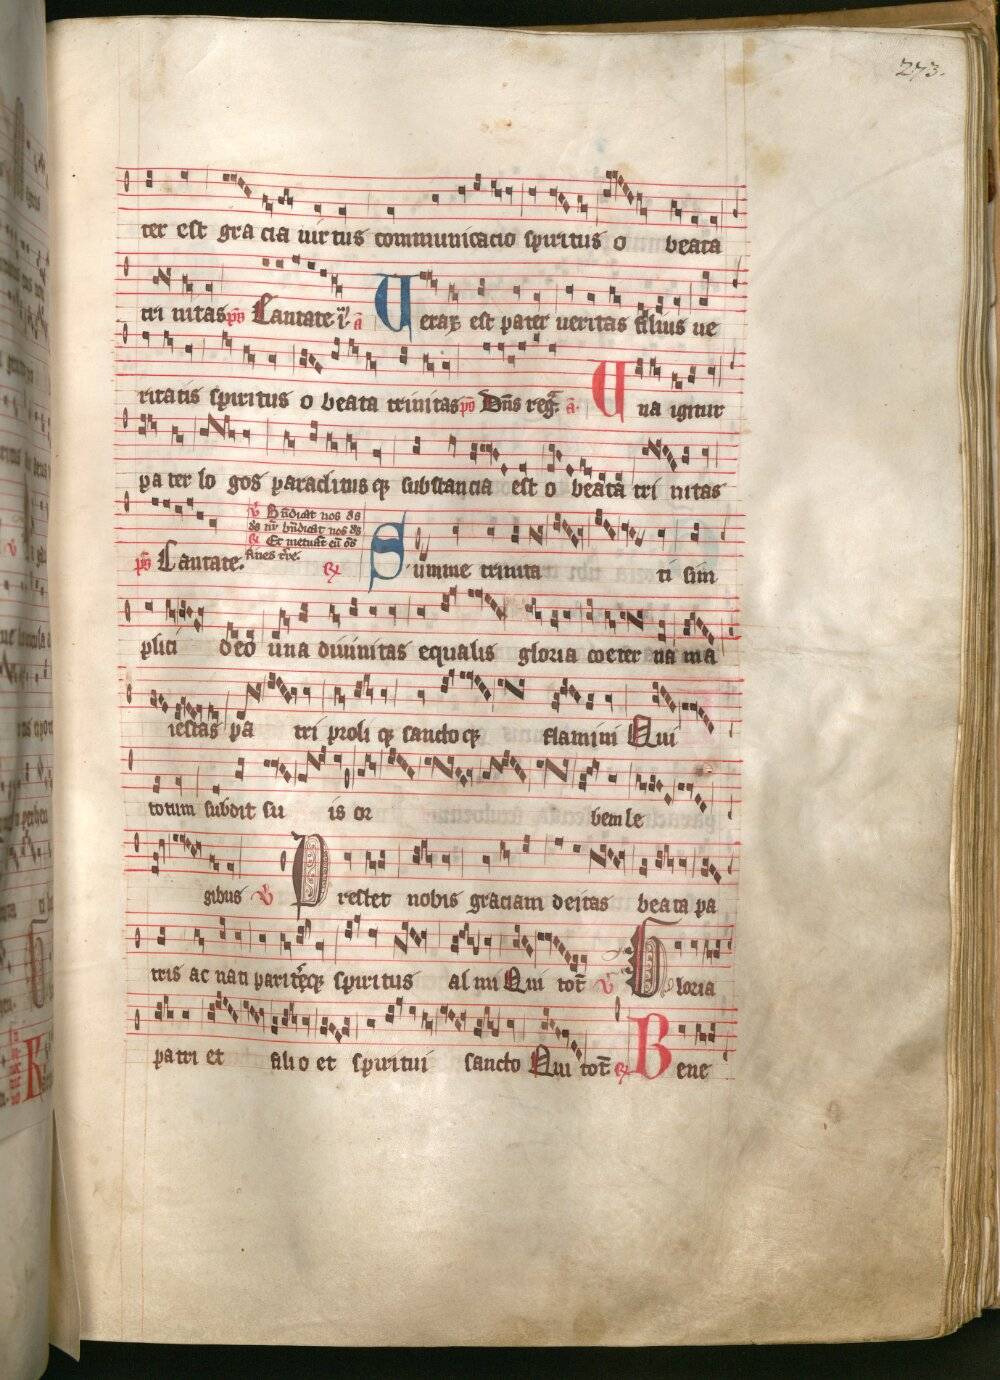 273.
ter est gra cia uir tus communicacio spiritus o beata
tri nitas ps Cantate i. a Verax est pater ueritas filius ue
ritatis spiritus o beata trinitas ps Dns reg. a. Una igitur
pa ter lo gos paraclitus q substancia est o beata tri nitas
V Bndicat nos ds
ds nr bndicat nos ds
R Et metuat eu os
fines tre.
ps Cantate. R Summe trinita ti sim
plici deo una diuinitas equalis gloria coeter na ma
iestas pa tri proli q sanctoq flamini Qui
totum subdit su is or bem le
gibus V Prestet nobis graciam deitas beata pa
tris ac nati pariterq spiritus al mi Qui tot V Gloria
patri et filio et spiritui sancto Qui tot R Bene